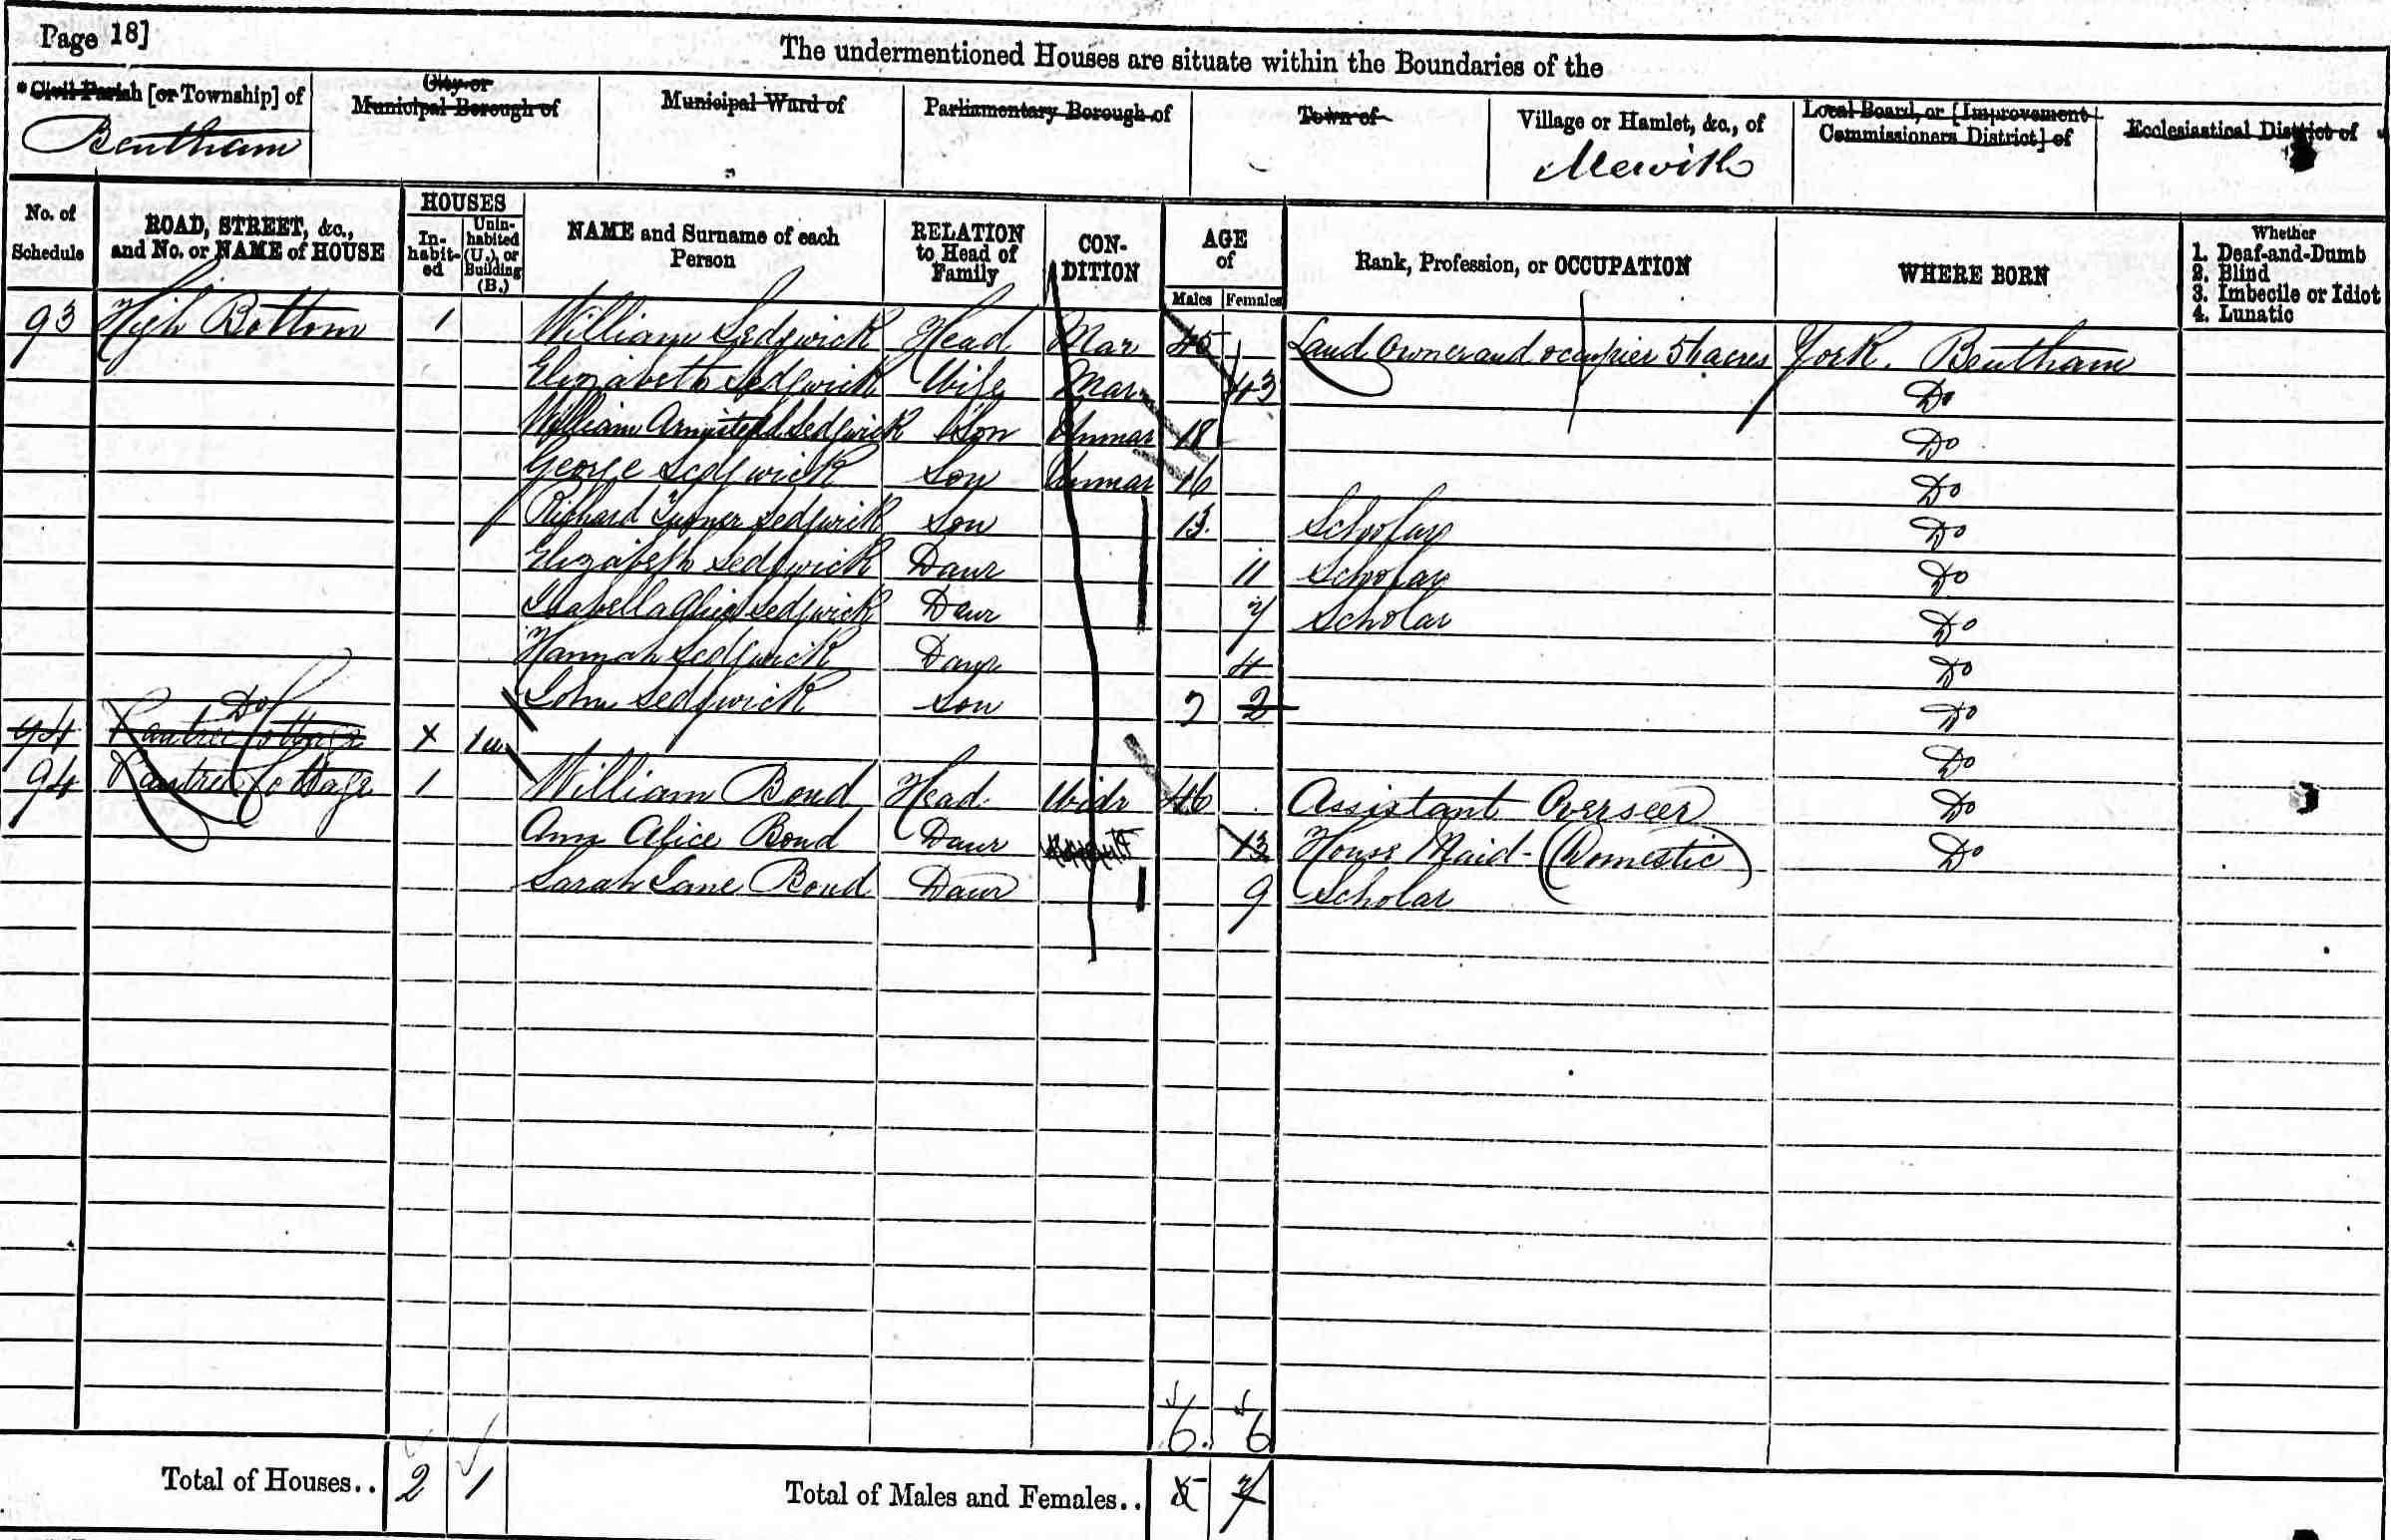 Page 18]
The undermentioned Houses are situate within the Boundaries of the
*Civil Parish [or Township] of
Bentham
City or
Municipal Borough of
Municipal Ward of
Parliamentary Borough of
Town of
Village or Hamlet, &c., of
Mewith
Local Board, or [Improvement
Commissioners District] of
Ecclesiastical District of
No. of
Schedule
ROAD, STREET, &c.,
and No. or NAME of HOUSE
HOUSES
In-
habit-
ed
Unin-
habited
(U.), or
Building
(B.)
NAME and Surname of each
Person
RELATION
to Head of
Family
CON-
DITION
AGE
of
Males Females
Rank, Profession, or OCCUPATION
WHERE BORN
Whether
1. Deaf-and-Dumb
2. Blind
3. Imbecile or Idiot
4. Lunatic
93 High Bottom 1 William Sedgwick Head Mar 45 Land Owner and occupier 51 acres York. Bentham
Elizabeth Sedgwick Wife Mar 43 Do
William Armistead Sedgwick Son Unmar 18 Do
George Sedgwick Son Unmar 16 Do
Richard Turner Sedgwick Son 13 Scholar Do
Elizabeth Sedgwick Daur 11 Scholar Do
Isabella Alice Sedgwick Daur 7 Scholar Do
Hannah Sedgwick Daur 4 Do
John Sedgwick Son 2 2 Do
94 Cottage Do X 1u Do
94 Cottage 1 William Bond Head Widr 46 Assistant Overseer Do
Ann Alice Bond Daur 13 House Maid - (Domestic) Do
Sarah Jane Bond Daur 9 Scholar
6. 6
Total of Houses.. 2 1 Total of Males and Females.. 5 7